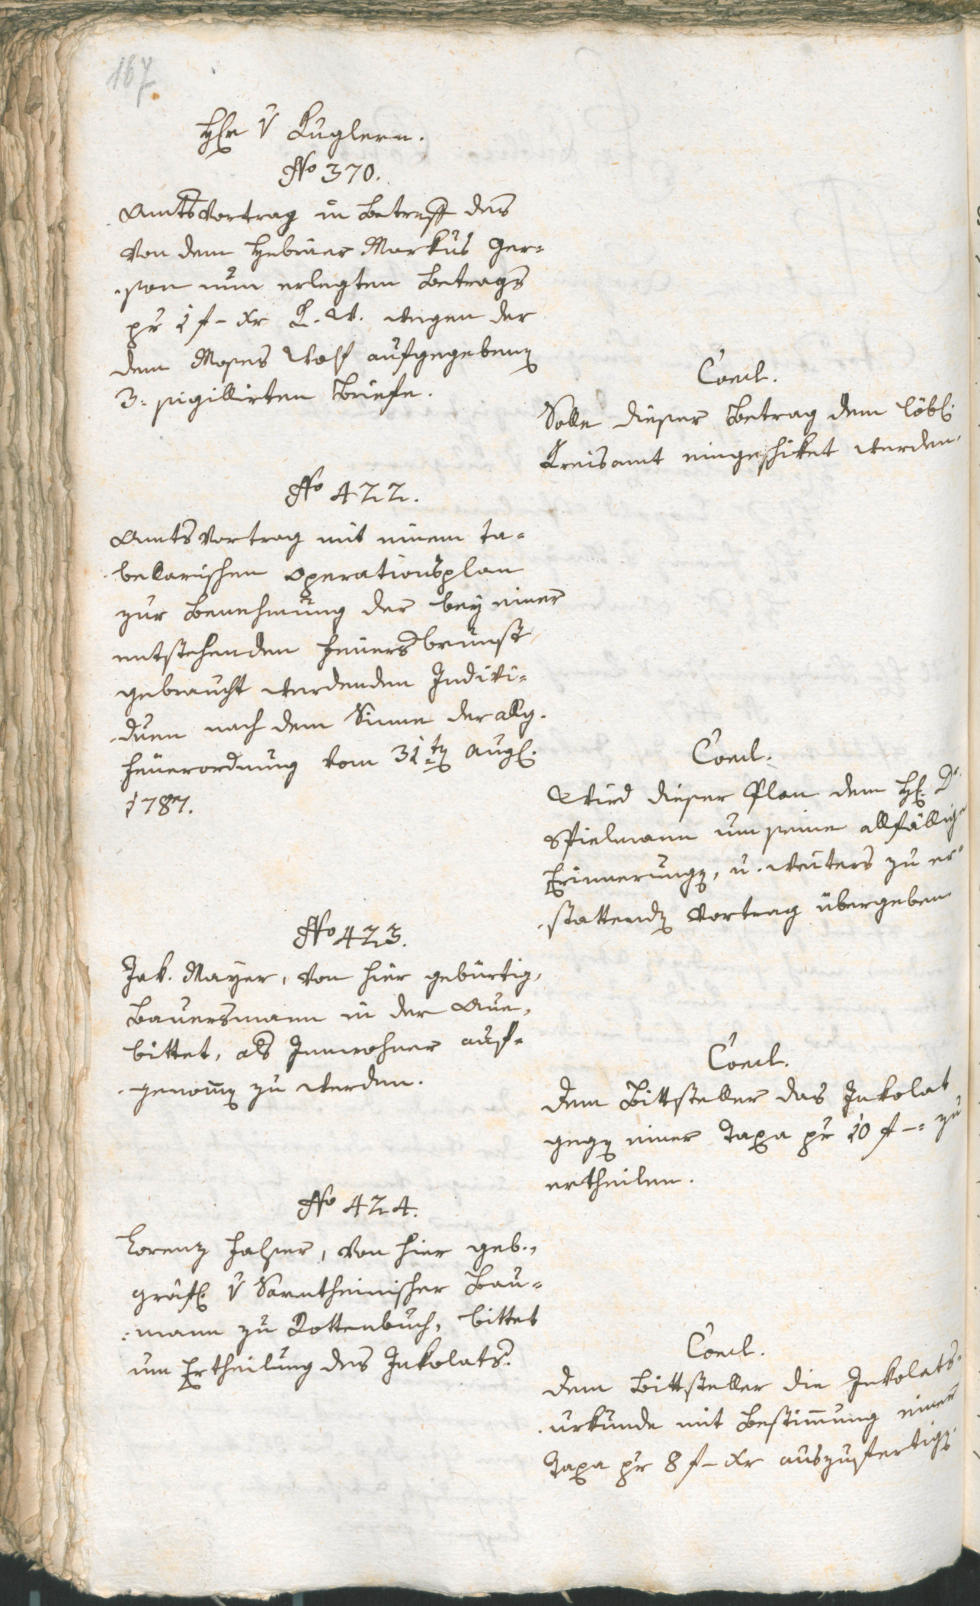 167
Hr v Kuglern.
No 370.
Amts Vortrag in Betreff des
von dem Hebräer Markus Ger-
son nun erlegten Betrags
pr 1 f - xr K.W. wegen der
dem Moses Wolf aufgegebenen
3. sigillirten Briefe.
Concl.
Solle dieser Betrag dem löbl:
Kreisamt eingeschiket werden.
No 422.
Amts Vortrag mit einem ta-
bellarischen Operationsplan
zur Benehmung der bey einer
entstehenden Feuersbrunst
gebraucht werdenden Indivi-
duen nach dem Sinne der allg.
Feuerordnung vom 31ten Aug.
1787.
Concl.
Wird dieser Plan dem H: Dr
Spielmann um seine allfällige
Erinnerung, u. weiters zu er-
stattenden Vortrag übergeben
No 423.
Jak. Mayer, von hier gebürtig,
Bauersmann in der Aue,
bittet, als Innwohner auf-
genomen zu werden.
Concl.
Dem Bittsteller das Inkolat
gegen einer Taxa pr 10 f -: zu
ertheilen.
No 424.
Lorenz Falser, von hier geb.,
gräfl v Sarntheinischer Bau-
mann zu Rottenbuch, bittet
um Ertheilung des Inkolats.
Concl.
Dem Bittsteller die Inkolats-
urkunde mit Bestimung einer
Taxa pr 8 f - xr auszufertigen